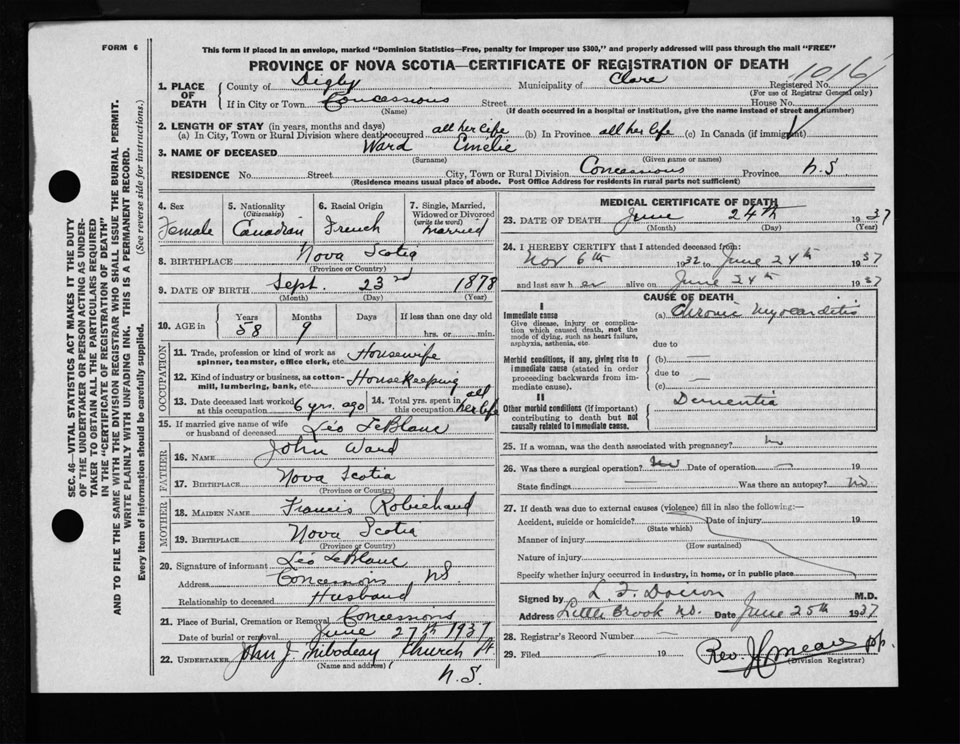 FORM 6
This form if placed in an envelope, marked "Dominion Statistics—Free, penalty for improper use $300," and properly addressed will pass through the mail "FREE"
PROVINCE OF NOVA SCOTIA—CERTIFICATE OF REGISTRATION OF DEATH
1016
1. PLACE OF DEATH
County of Digby Municipality of Clare Registered No.
(For use of Registrar General only)
If in City or Town Concessions Street House No.
(Name) (If death occurred in a hospital or institution, give the name instead of street and number)
2. LENGTH OF STAY (in years, months and days)
(a) In City, Town or Rural Division where death occurred all her life (b) In Province all her life (c) In Canada (if immigrant)
3. NAME OF DECEASED Ward Emelie
(Surname) (Given name or names)
RESIDENCE No. Street City, Town or Rural Division Concessions Province N.S.
(Residence means usual place of abode. Post Office Address for residents in rural parts not sufficient)
4. Sex Female
5. Nationality (Citizenship) Canadian
6. Racial Origin French
7. Single, Married, Widowed or Divorced (write the word) Married
8. BIRTHPLACE Nova Scotia
(Province or Country)
9. DATE OF BIRTH Sept. 23rd 1878
(Month) (Day) (Year)
10. AGE in Years 58 Months 9 Days If less than one day old hrs. or min.
OCCUPATION
11. Trade, profession or kind of work as spinner, teamster, office clerk, etc. Housewife
12. Kind of industry or business, as cotton-mill, lumbering, bank, etc. Housekeeping
13. Date deceased last worked at this occupation 6 yrs. ago
14. Total yrs. spent in this occupation all her life
15. If married give name of wife or husband of deceased Léo LeBlanc
FATHER
16. NAME John Ward
17. BIRTHPLACE Nova Scotia
(Province or Country)
MOTHER
18. MAIDEN NAME Francis Robichaud
19. BIRTHPLACE Nova Scotia
(Province or Country)
20. Signature of informant Léo LeBlanc
Address Concessions N.S.
Relationship to deceased Husband
21. Place of Burial, Cremation or Removal Concessions
Date of burial or removal June 27th 1937
22. UNDERTAKER John J. Church Pt.
(Name and address)
N.S.
MEDICAL CERTIFICATE OF DEATH
23. DATE OF DEATH June 24th 1937
(Month) (Day) (Year)
24. I HEREBY CERTIFY that I attended deceased from:
Nov 6th 1932 to June 24th 1937
and last saw her alive on June 24th 1937
CAUSE OF DEATH
I
Immediate cause
Give disease, injury or complication which caused death, not the mode of dying, such as heart failure, asphyxia, asthenia, etc.
(a) Chronic Myocarditis
due to
Morbid conditions, if any, giving rise to immediate cause (stated in order proceeding backwards from immediate cause).
(b) —
due to
(c) —
II
Other morbid conditions (if important) contributing to death but not causally related to immediate cause.
Dementia
25. If a woman, was the death associated with pregnancy? No
26. Was there a surgical operation? No Date of operation — 19
State findings — Was there an autopsy? No
27. If death was due to external causes (violence) fill in also the following:—
Accident, suicide or homicide? Date of injury 19
(State which)
Manner of injury
(How sustained)
Nature of injury
Specify whether injury occurred in industry, in home, or in public place
Signed by M.D.
Address Little Brook N.S. Date June 25th 1937
28. Registrar's Record Number —
29. Filed — 19 Rev. pp.
(Division Registrar)
SEC. 46—VITAL STATISTICS ACT MAKES IT THE DUTY
OF THE UNDERTAKER OR PERSON ACTING AS UNDER-
TAKER TO OBTAIN ALL THE PARTICULARS REQUIRED
IN THE "CERTIFICATE OF REGISTRATION OF DEATH"
AND TO FILE THE SAME WITH THE DIVISION REGISTRAR WHO SHALL ISSUE THE BURIAL PERMIT.
WRITE PLAINLY WITH UNFADING INK. THIS IS A PERMANENT RECORD.
Every item of information should be carefully supplied. (See reverse side for instructions.)